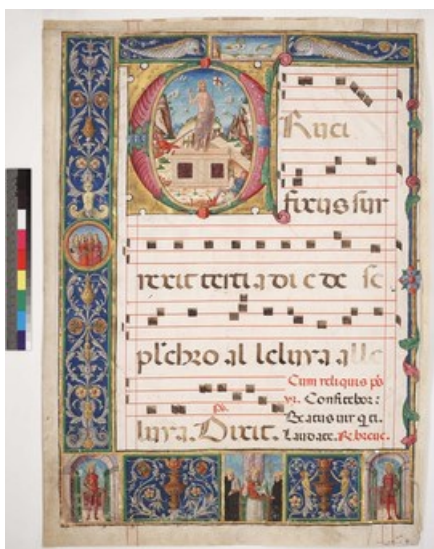 CRuci
fixus sur
rexit tertia di e de se
plchro al leluya alle
luya. ps. Dixit.
Cum reliquis ps
vt. Confitebor:
Beatus uir q ti.
Laudate. Re breue.